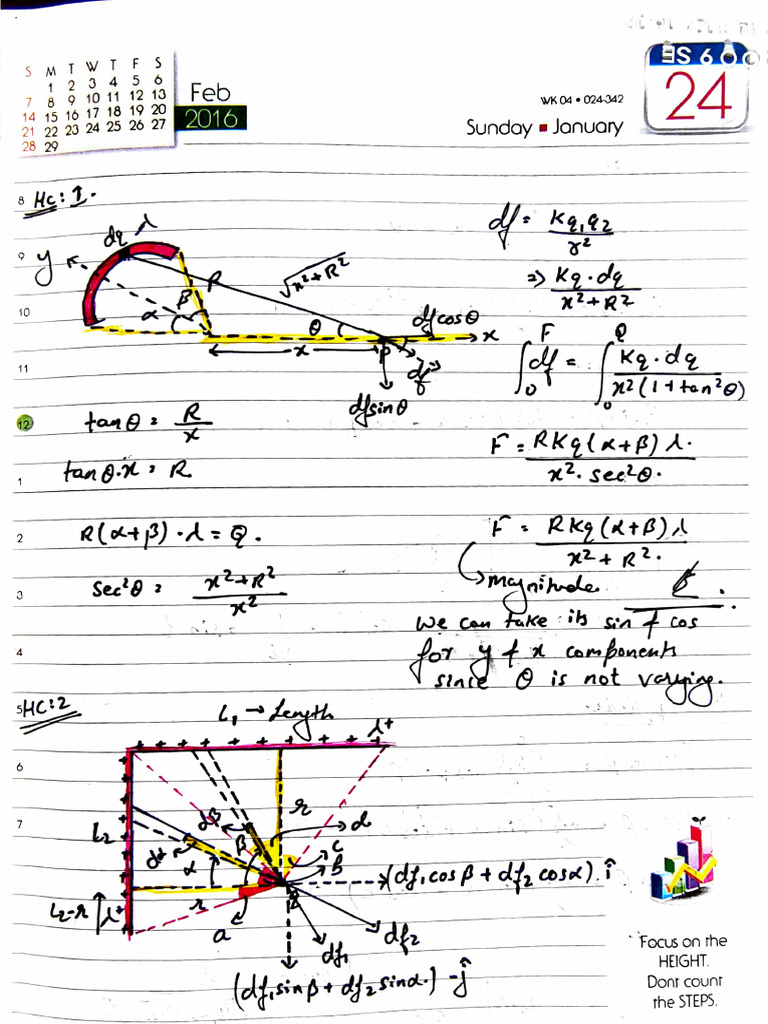 S M T W T F S
1 2 3 4 5 6
7 8 9 10 11 12 13
14 15 16 17 18 19 20
21 22 23 24 25 26 27
28 29
Feb
2016
WK 04 • 024-342
Sunday ▪ January
24
8
HC: 1.
dq λ
y
9
R
√x²+R²
β
α
10
θ
df cosθ
x
x
P
df
11
df sinθ
df = Kq₁q₂ / r²
⇒ Kq·dq / x²+R²
∫₀^F df = ∫₀^Q Kq·dq / x²(1+tan²θ)
12
tanθ = R / x
F = RKq(α+β)λ. / x²·sec²θ.
1
tanθ·x = R
2
R(α+β)·λ = Q.
F = RKq(α+β)λ / x²+R².
3
sec²θ = x²+R² / x²
magnitude.
we can take its sin & cos
4
for y & x components
since θ is not varying.
5
HC:2
L₁ → Length
+ + + + + + + + + + + λ⁺
6
r
7
L₂
dβ
d
dα
β
c
α
b
(df₁cosβ + df₂cosα).î
L₂-r
λ⁺
r
a
df₂
df₁
(df₁sinβ + df₂sinα.) -ĵ
Focus on the
HEIGHT.
Dont count
the STEPS.